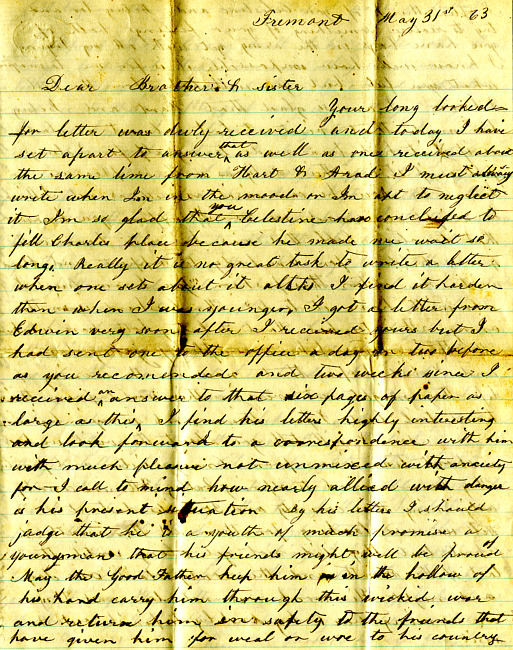 Fremont May 31st 63
Dear Brother & sister
Your long looked-
for letter was duly received and today I have
set apart to answer that as well as one received about
the same time from Hart & Arad. I must always
write when Im in the mood or Im apt to neglect
it Im so glad that you Celestine has concluded to
fill Charles place because he made me wait so
long. Really it is no great task to write a letter
when one sets about it altho I find it harder
than when I was younger, I got a letter from
Edwin very soon after I received yours but I
had sent one to the office a day or two before
as you recominded and two weeks since I
received an answer to that six pages of paper as
large as this, I find his letters highly interesting
and look forward to a coorespondence with him
with much pleasure not unmixed with anxiety
for I call to mind how nearly allied with danger
is his present situation by his letters I should
judge that he is a youth of much promise a
youngman that his friends might well be proud of
May the Good Father keep him in the hollow of
his hand carry him through this wicked war
and return him in safety to the friends that
have given him for weal or woe to his country